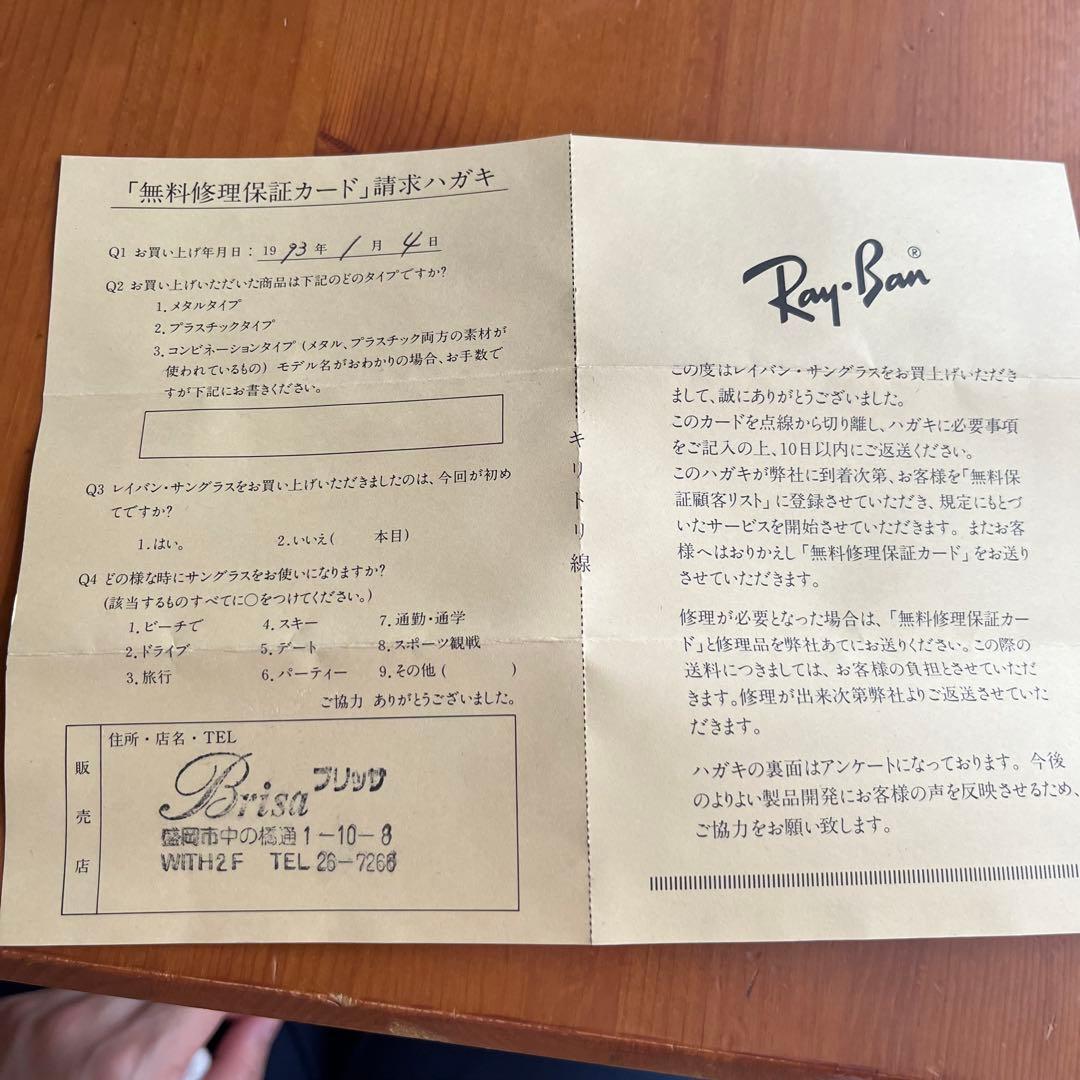 「無料修理保証カード」請求ハガキ
Q1 お買い上げ年月日：1993年 1月 4日
Q2 お買い上げいただいた商品は下記のどのタイプですか?
1.メタルタイプ
2.プラスチックタイプ
3.コンビネーションタイプ(メタル、プラスチック両方の素材が
使われているもの) モデル名がおわかりの場合、お手数で
すが下記にお書きください。
Q3 レイバン・サングラスをお買い上げいただきましたのは、今回が初め
てですか?
1.はい。 2.いいえ( 本目)
Q4 どの様な時にサングラスをお使いになりますか?
(該当するものすべてに○をつけてください。)
1.ビーチで 4.スキー 7.通勤・通学
2.ドライブ 5.デート 8.スポーツ観戦
3.旅行 6.パーティー 9.その他( )
ご協力 ありがとうございました。
販売店
住所・店名・TEL
Brisa ブリッサ
盛岡市中の橋通1-10-8
WITH2F TEL 26-7268
キリトリ線
Ray・Ban®
この度はレイバン・サングラスをお買上げいただき
まして、誠にありがとうございました。
このカードを点線から切り離し、ハガキに必要事項
をご記入の上、10日以内にご返送ください。
このハガキが弊社に到着次第、お客様を「無料保
証顧客リスト」に登録させていただき、規定にもとづ
いたサービスを開始させていただきます。またお客
様へはおりかえし「無料修理保証カード」をお送り
させていただきます。
修理が必要となった場合は、「無料修理保証カー
ド」と修理品を弊社あてにお送りください。この際の
送料につきましては、お客様の負担とさせていただ
きます。修理が出来次第弊社よりご返送させていた
だきます。
ハガキの裏面はアンケートになっております。今後
のよりよい製品開発にお客様の声を反映させるため、
ご協力をお願い致します。